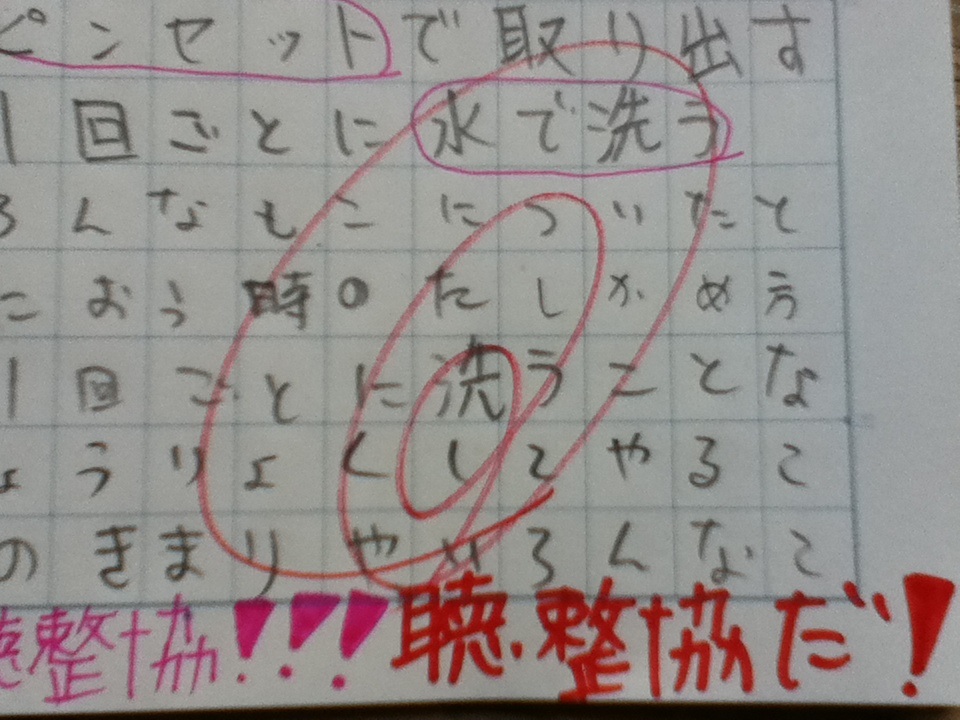 ピンセットで取り出す
1回ごとに水で洗う
ろんなもこについたと
におう時のたしかめう
1回ごとに洗うことな
ょうりょくしてやるこ
のきまりやいろんなこ
聴整協!!! 聴整協だ!